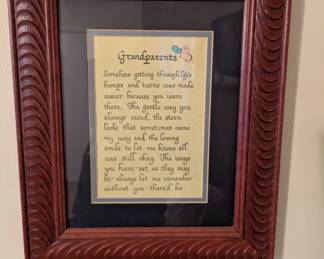 Grandparents
Somehow getting through life's
bumps and turns was made
easier because you were
there. The gentle way you
always cared, the stern
looks that sometimes came
my way and the loving
smile to let me know all
was still okay. The ways
you have-set as they may
be-always let me remember
without you-there'd be